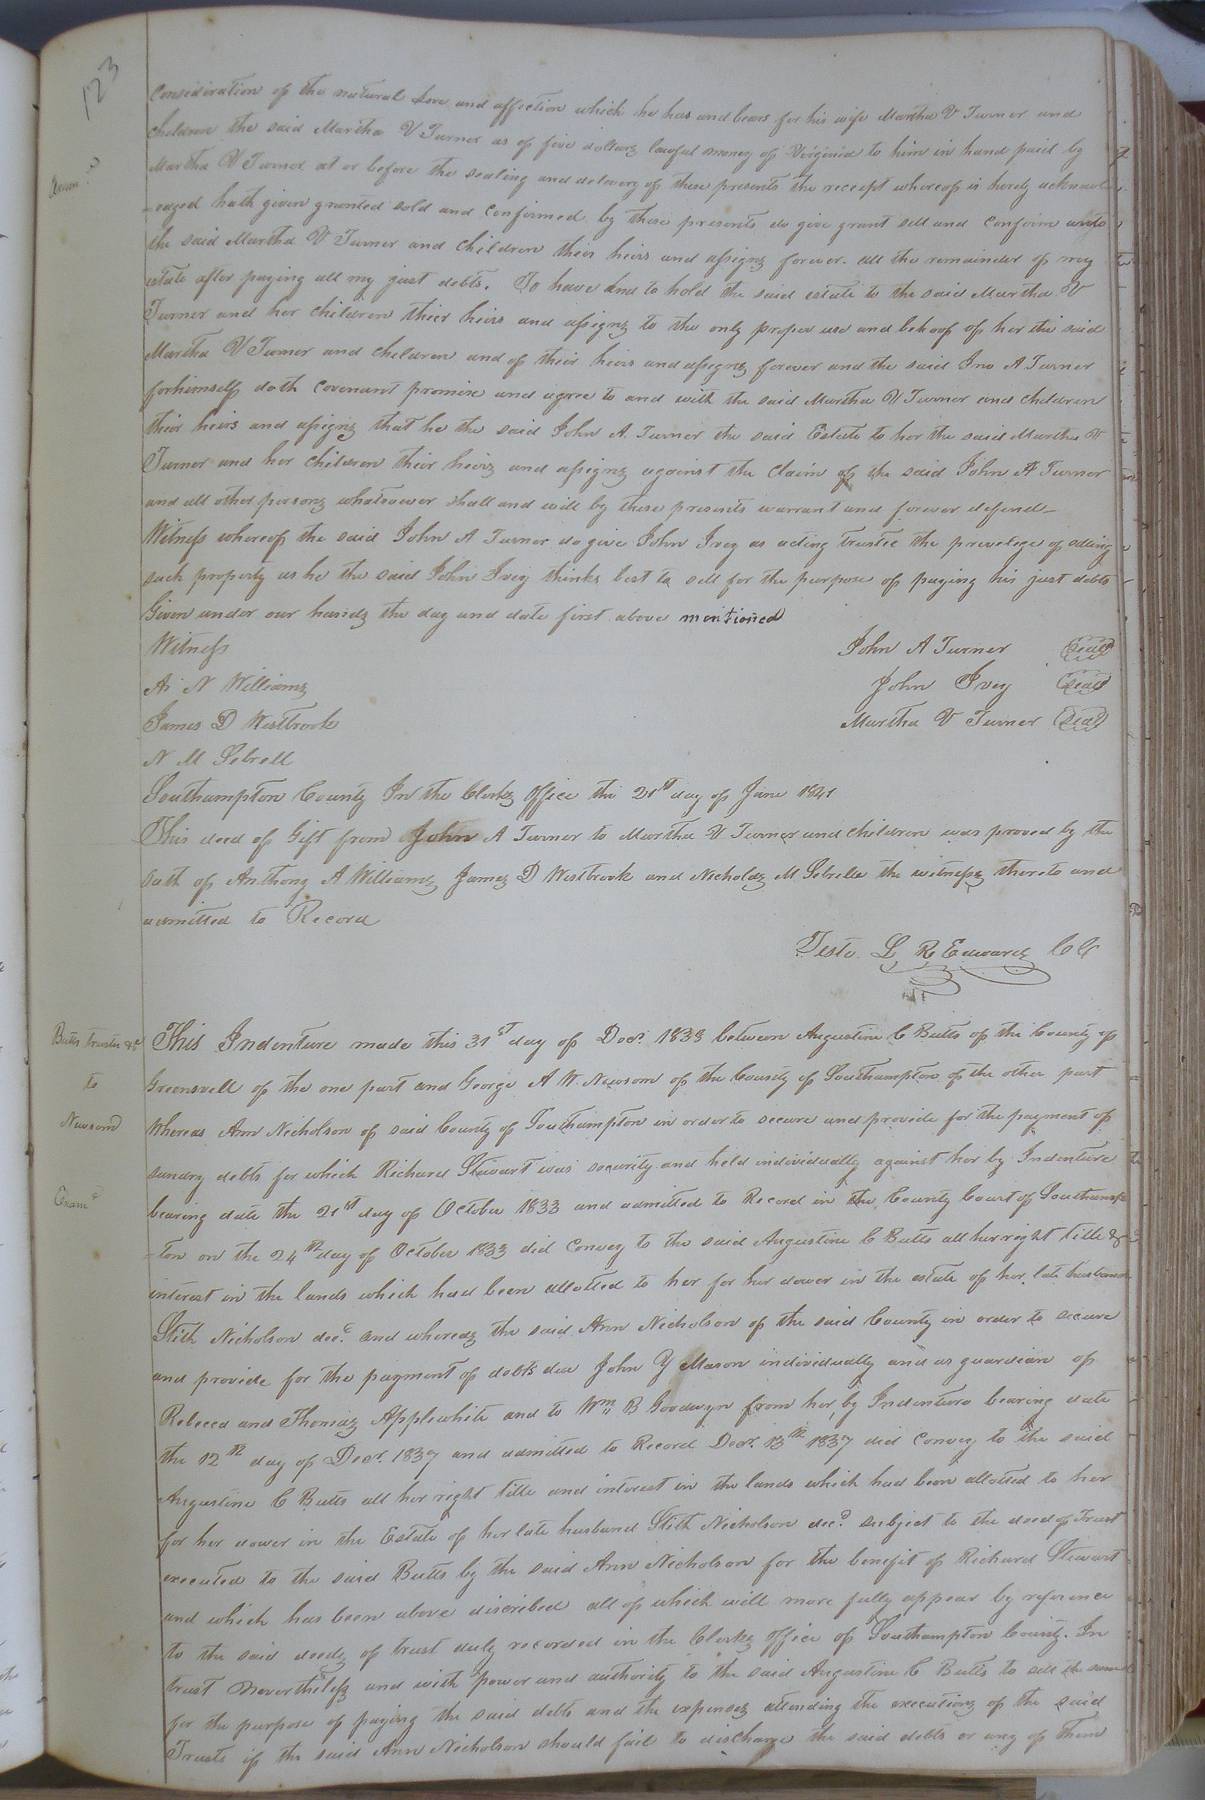 123
Consideration of the natural Love and affection which he has and bears for his wife Martha V Turner and
children the said Martha V Turner as of five dollars lawful money of Virginia to him in hand paid by
Exam.d
Martha V Turner at or before the sealing and delivery of these presents the receipt whereof is hereby acknowl
-edged hath given granted sold and confirmed by these presents do give grant sell and confirm unto
the said Martha V Turner and children their heirs and assigns forever. all the remainder of my
estate after paying all my just debts. To have and to hold the said estate to the said Martha V
Turner and her children their heirs and assigns to the only proper use and behoof of her the said
Martha V Turner and children and of their heirs and assigns forever and the said Jno A Turner
for himself doth covenant promise and agree to and with the said Martha V Turner and children
their heirs and assigns that he the said John A. Turner the said Estate to her the said Martha V
Turner and her children their heirs and assigns against the claim of the said John A Turner
and all other persons whatsoever shall and will by these presents warrant and forever defend_
Witness whereof the said John A Turner do give John Ivey as acting trustee the prevelege of selling
such property as he the said John Ivey thinks best to sell for the purpose of paying his just debts
Given under our hands the day and date first above mentioned
Witness John A Turner Seal
A. N Williams John Ivey Seal
James D Westbrook Martha V Turner Seal
N M Sebrell
Southampton County In the Clerks Office the 21st day of June 1841
This deed of Gift from John A Turner to Martha V Turner and children was proved by the
oath of Anthony A Williams James D Westbrook and Nicholas M Sebrelle the witness thereto and
admitted to Record
Teste. L R Edwards CC
Butts trustee &c
to
Newsom
Exam.d
This Indenture made this 31st day of Decr. 1838 between Augustine C Butts of the County of
Greensvell of the one part and George A W. Newsom of the County of Southampton of the other part
Whereas Ann Nicholson of said County of Southampton in order to secure and provide for the payment of
sundry debts for which Richard Stewart was security and held individually against her by Indenture
bearing date the 21st day of October 1833 and admitted to Record in the County Court of Southamp
-ton on the 24th day of October 1833 did convey to the said Augustine C Butts all her right title &
interest in the lands which had been allotted to her for her dower in the estate of her late husband
Stith Nicholson decd. and whereas the said Ann Nicholson of the said County in order to secure
and provide for the payment of debts due John Y Mason individually and as guardian of
Rebecca and Thomas Applewhite and to Wm. B Goodwyn from her, by Indenture bearing date
the 12th day of Decr. 1837 and admitted to Record Decr. 13th 1837 did convey to the said
Augustine C Butts all her right title and interest in the lands which had been allotted to her
for her dower in the Estate of her late husband Stith Nicholson decd. subject to the deed of Trust
executed to the said Butts by the said Ann Nicholson for the benefit of Richard Stewart
and which has been above discribed all of which will more fully appear by reference
to the said deeds of trust duly recorded in the Clerks Office of Southampton County. In
trust nevertheless and with power and authority to the said Augustine C Butts to sell the same
for the purpose of paying the said debts and the expenses attending the executions of the said
Trusts if the said Ann Nicholson should fail to discharge the said debts or any of them